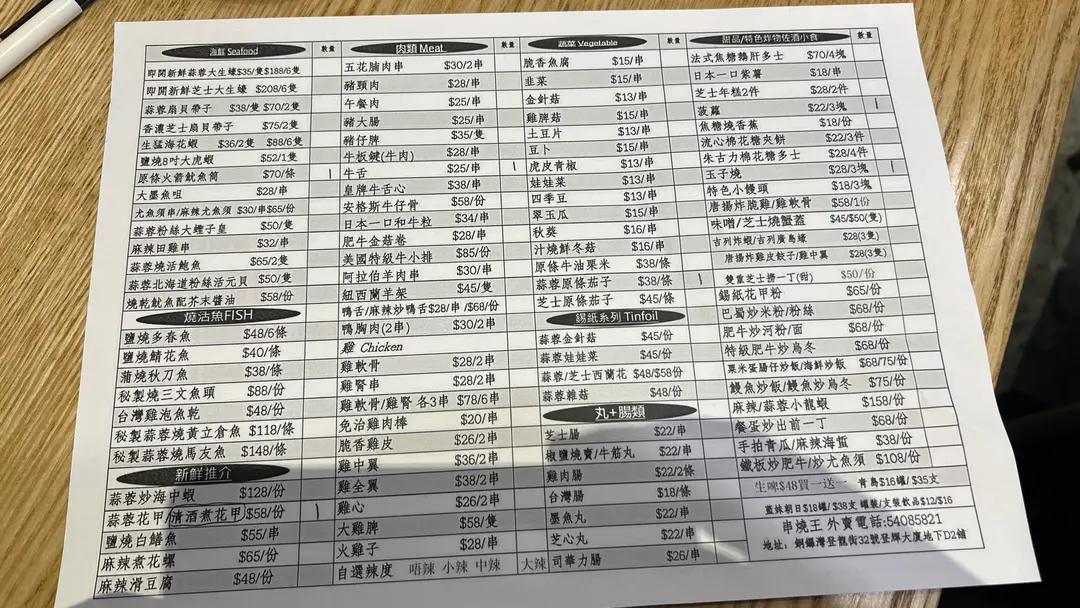 海鮮 Seafood 數量
即開新鮮蒜蓉大生蠔$35/隻$188/6隻
即開新鮮芝士大生蠔 $208/6隻
蒜蓉扇貝帶子 $38/隻 $70/2隻
香濃芝士扇貝帶子 $75/2隻
生猛海花蝦 $36/2隻 $88/6隻
鹽燒8吋大虎蝦 $52/1隻
原條火箭魷魚筒 $70/條
大墨魚咀 $28/串
尤魚須串/麻辣尤魚須 $30/串$65/份
蒜蓉粉絲大蟶子皇 $50/隻
麻辣田雞串 $32/串
蒜蓉燒活鮑魚 $65/2隻
蒜蓉北海道粉絲活元貝 $50/隻
燒乾魷魚配芥末醬油 $58/份
燒活魚FISH
鹽燒多春魚 $48/6條
鹽燒鯖花魚 $40/條
蒲燒秋刀魚 $38/條
秘製燒三文魚頭 $88/份
台灣雞泡魚乾 $48/份
秘製蒜蓉燒黃立倉魚 $118/條
秘製蒜蓉燒馬友魚 $148/條
新鮮推介
蒜蓉炒海中蝦 $128/份
蒜蓉花甲/清酒煮花甲 $58/份
鹽燒白鱔魚 $55/串
麻辣煮花螺 $65/份
麻辣滑豆腐 $48/份
肉類 Meat 數量
五花腩肉串 $30/2串
豬頸肉 $28/串
午餐肉 $25/串
豬大腸 $25/串
豬仔脾 $35/隻
牛板鍵(牛肉) $28/串
牛舌 $25/串
皇牌牛舌心 $38/串
安格斯牛仔骨 $58/份
日本一口和牛粒 $34/串
肥牛金菇卷 $28/串
美國特級牛小排 $85/份
阿拉伯羊肉串 $30/串
紐西蘭羊架 $45/隻
鴨舌/麻辣炒鴨舌$28/串 /$68/份
鴨胸肉(2串) $30/2串
雞 Chicken
雞軟骨 $28/2串
雞腎串 $28/2串
雞軟骨/雞腎 各3串 $78/6串
免治雞肉棒 $20/串
脆香雞皮 $26/2串
雞中翼 $36/2串
雞全翼 $38/2串
雞心 $26/2串
大雞脾 $58/隻
火雞子 $28/串
自選辣度 唔辣 小辣 中辣 大辣
蔬菜 Vegetable 數量
脆香魚腐 $15/串
韭菜 $15/串
金針菇 $13/串
雞脾菇 $15/串
土豆片 $13/串
豆卜 $15/串
虎皮青椒 $13/串
娃娃菜 $13/串
四季豆 $13/串
翠玉瓜 $15/串
秋葵 $16/串
汁燒鮮冬菇 $16/串
原條牛油粟米 $38/條
蒜蓉原條茄子 $38/條
芝士原條茄子 $45/條
錫紙系列 Tinfoil
蒜蓉金針菇 $45/份
蒜蓉娃娃菜 $45/份
蒜蓉/芝士西蘭花 $48/$58份
蒜蓉雜菇 $48/份
丸+腸類
芝士腸 $22/串
椒鹽燒賣/牛筋丸 $22/串
雞肉腸 $22/2條
台灣腸 $18/條
墨魚丸 $22/串
芝心丸 $22/串
司華力腸 $26/串
甜品/特色炸物佐酒小食 數量
法式焦糖鵝肝多士 $70/4塊
日本一口紫薯 $18/串
芝士年糕2件 $28/2件
菠蘿 $22/3塊
焦糖燒香蕉 $18/份
流心棉花糖夾餅 $22/3件
朱古力棉花糖多士 $28/4件
玉子燒 $28/3塊
特色小饅頭 $18/3塊
唐揚炸脆雞/雞軟骨 $58/1份
味噌/芝士燒蟹蓋 $45/$50(隻)
吉列炸蝦/吉列廣島蠔 $28(3隻)
唐揚炸雞皮餃子/雞中翼 $28(3隻)
雙重芝士撈一丁(甜) $50/份
錫紙花甲粉 $65/份
巴蜀炒米粉/粉絲 $68/份
肥牛炒河粉/面 $68/份
特級肥牛炒烏冬 $68/份
粟米蛋腸仔炒飯/海鮮炒飯 $68/75/份
鰻魚炒飯/鰻魚炒烏冬 $75/份
麻辣/蒜蓉小龍蝦 $158/份
餐蛋炒出前一丁 $68/份
手拍青瓜/麻辣海蜇 $38/份
鐵板炒肥牛/炒尤魚須 $108/份
生啤$48買一送一 青島$16罐/$35支
藍妹朝日$18罐/$38支 罐裝/支裝飲品$12/$16
串燒王 外賣電話:54085821
地址: 銅鑼灣登龍街32號登輝大廈地下D2鋪